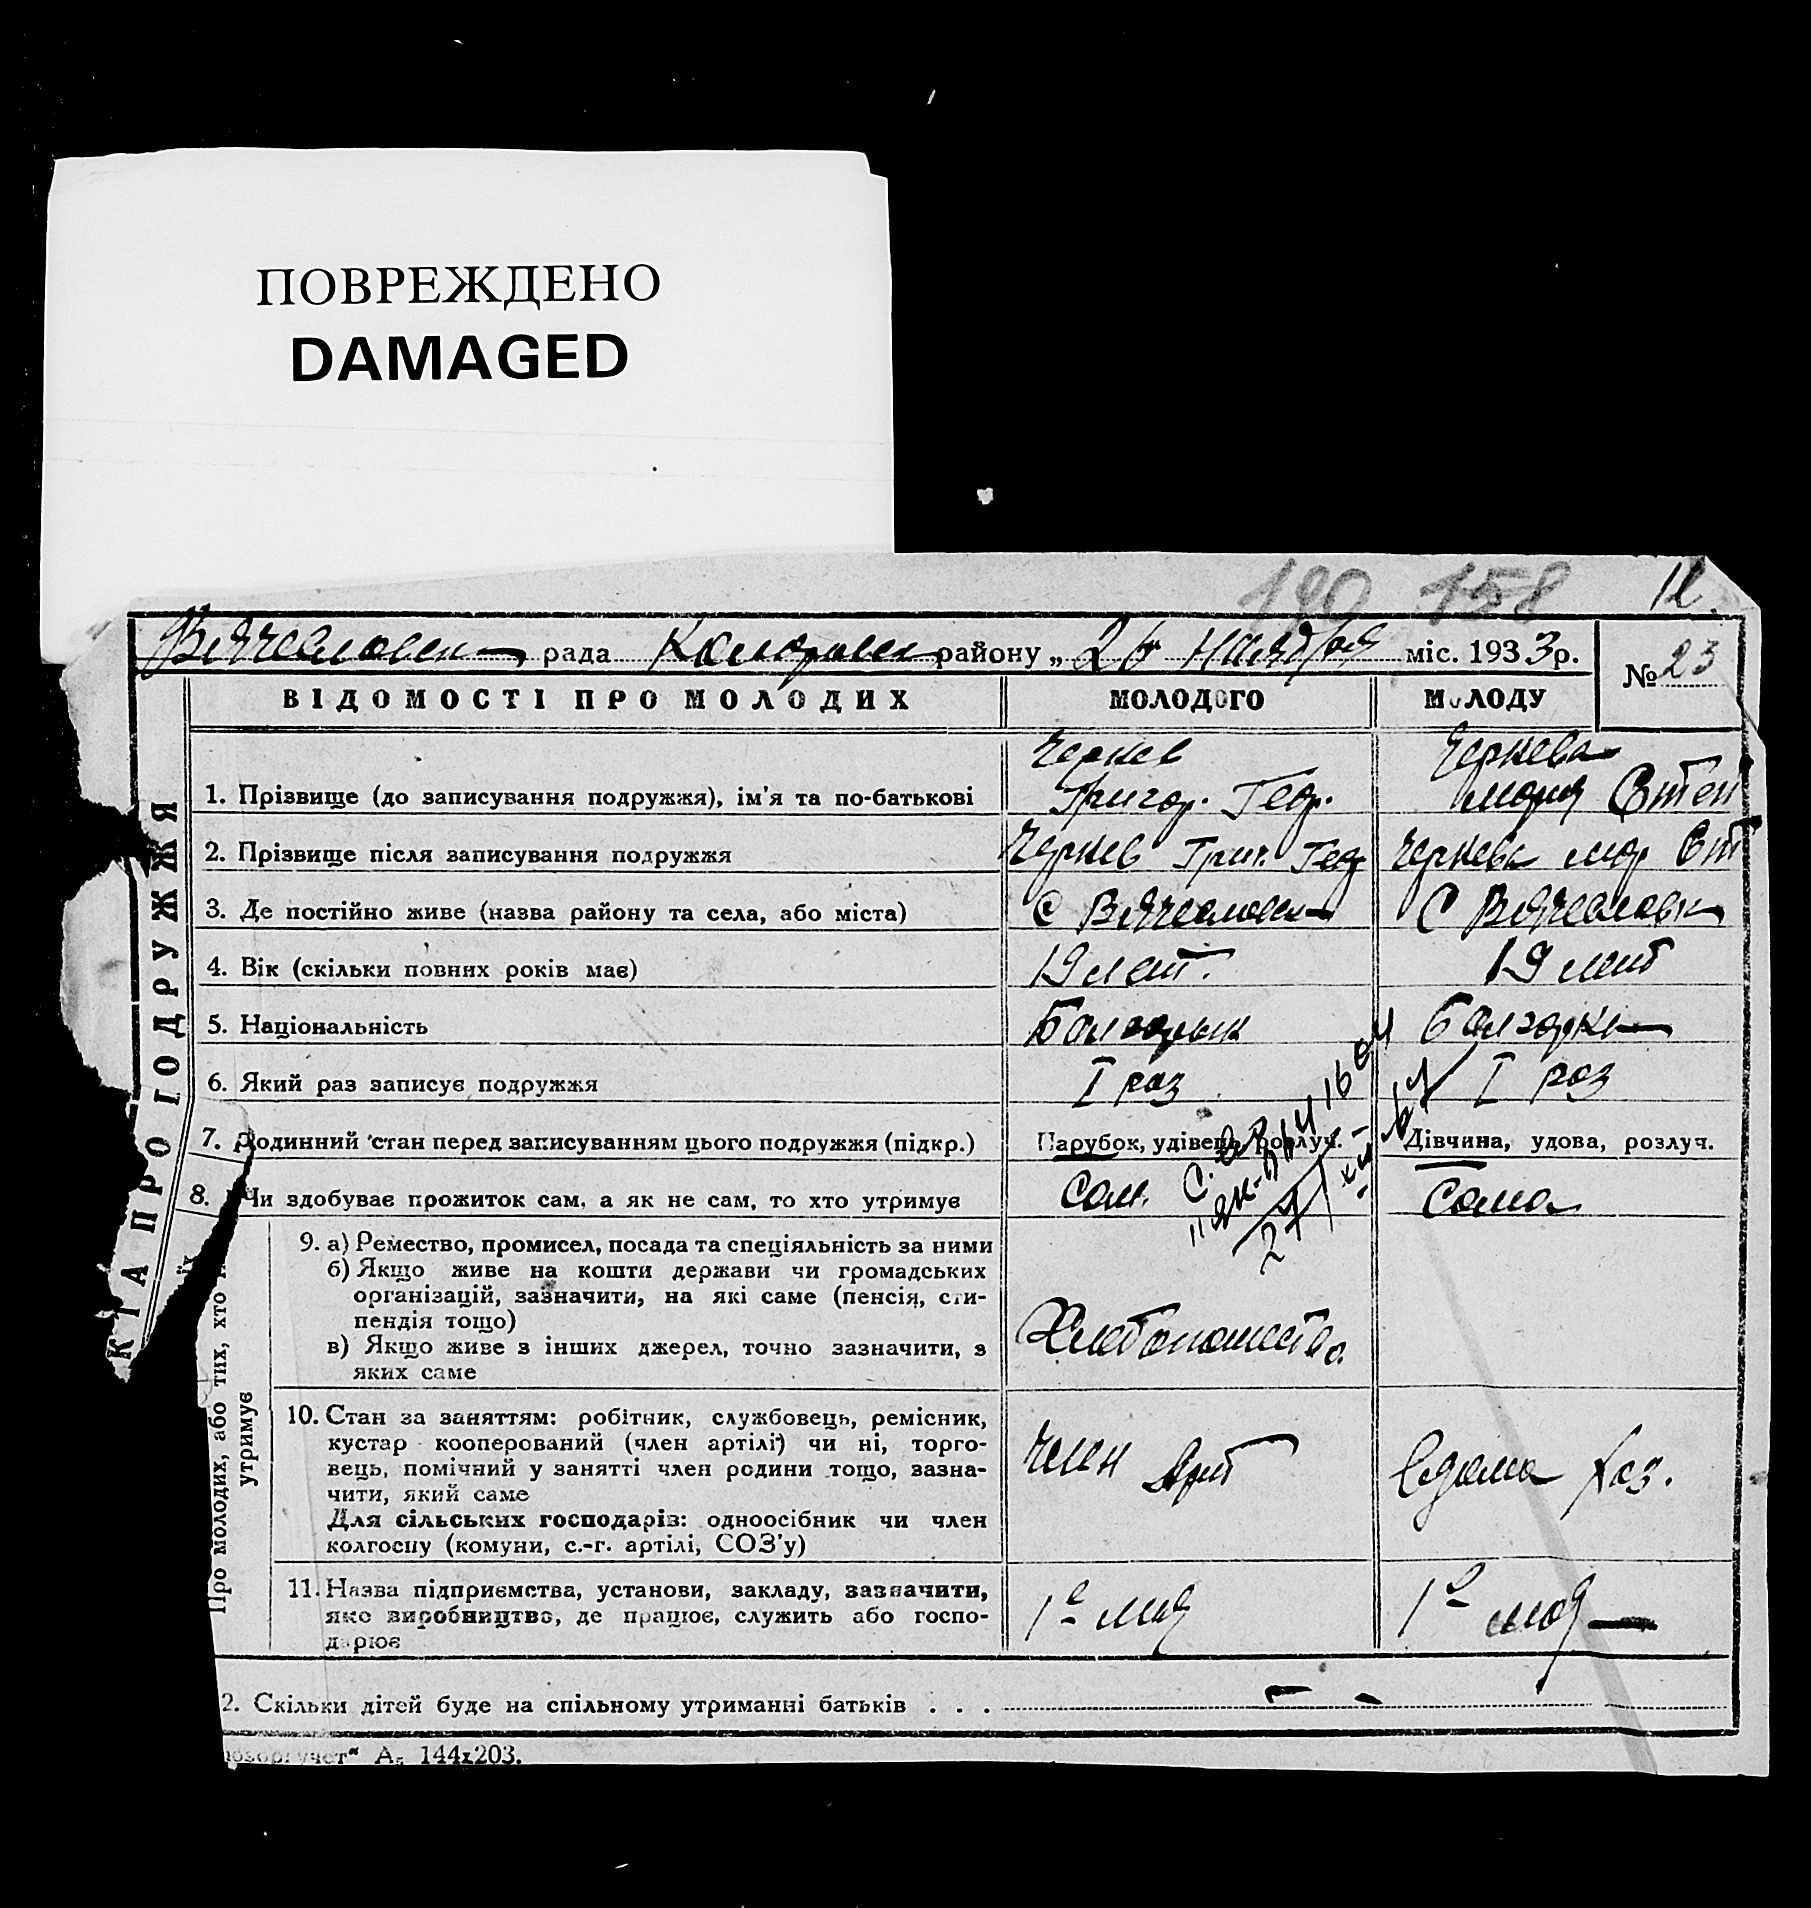 ПОВРЕЖДЕНО
DAMAGED
190 158 12.
Вячеславск рада Коларовск району „ 26 ноября міс. 1933 р. № 23
ВІДОМОСТІ ПРО МОЛОДИХ МОЛОДОГО МОЛОДУ
Чернев Чернева
1. Прізвище (до записування подружжя), ім'я та по-батькові Григор. Геор. Мария Степ
2. Прізвище після записування подружжя Чернев Григ. Геор Чернева Мар Ст
3. Де постійно живе (назва району та села, або міста) С Вячеславк С Вячеславк
4. Вік (скільки повних років має) 19 лет. 19 лет
5. Національність Болгарин Болгарка
6. Який раз записує подружжя I раз I раз
7. Родинний стан перед записуванням цього подружжя (підкр.) Парубок, удівець, розлуч. Дівчина, удова, розлуч.
8. Чи здобуває прожиток сам, а як не сам, то хто утримує Сам. Сама
9. а) Ремество, промисел, посада та спеціяльність за ними
б) Якщо живе на кошти держави чи громадських
організацій, зазначити, на які саме (пенсія, сти-
пендія тощо)
в) Якщо живе з інших джерел, точно зазначити, з
яких саме
Хлебопашество.
10. Стан за заняттям: робітник, службовець, ремісник,
кустар кооперований (член артілі) чи ні, торго-
вець, помічний у занятті член родини тощо, зазна-
чити, який саме
Для сільських господарів: одноосібник чи член
колгоспу (комуни, с.-г. артілі, СОЗ'у)
член Арт
11. Назва підприємства, установи, закладу, зазначити,
яке виробництво, де працює, служить або госпо-
дарює
1е мая 1е мая
2. Скільки дітей буде на спільному утриманні батьків . . . - -
144х203.
КТ ПРО ОДРУЖЖЯ
Про молодих, або тих, хто їх
утримує